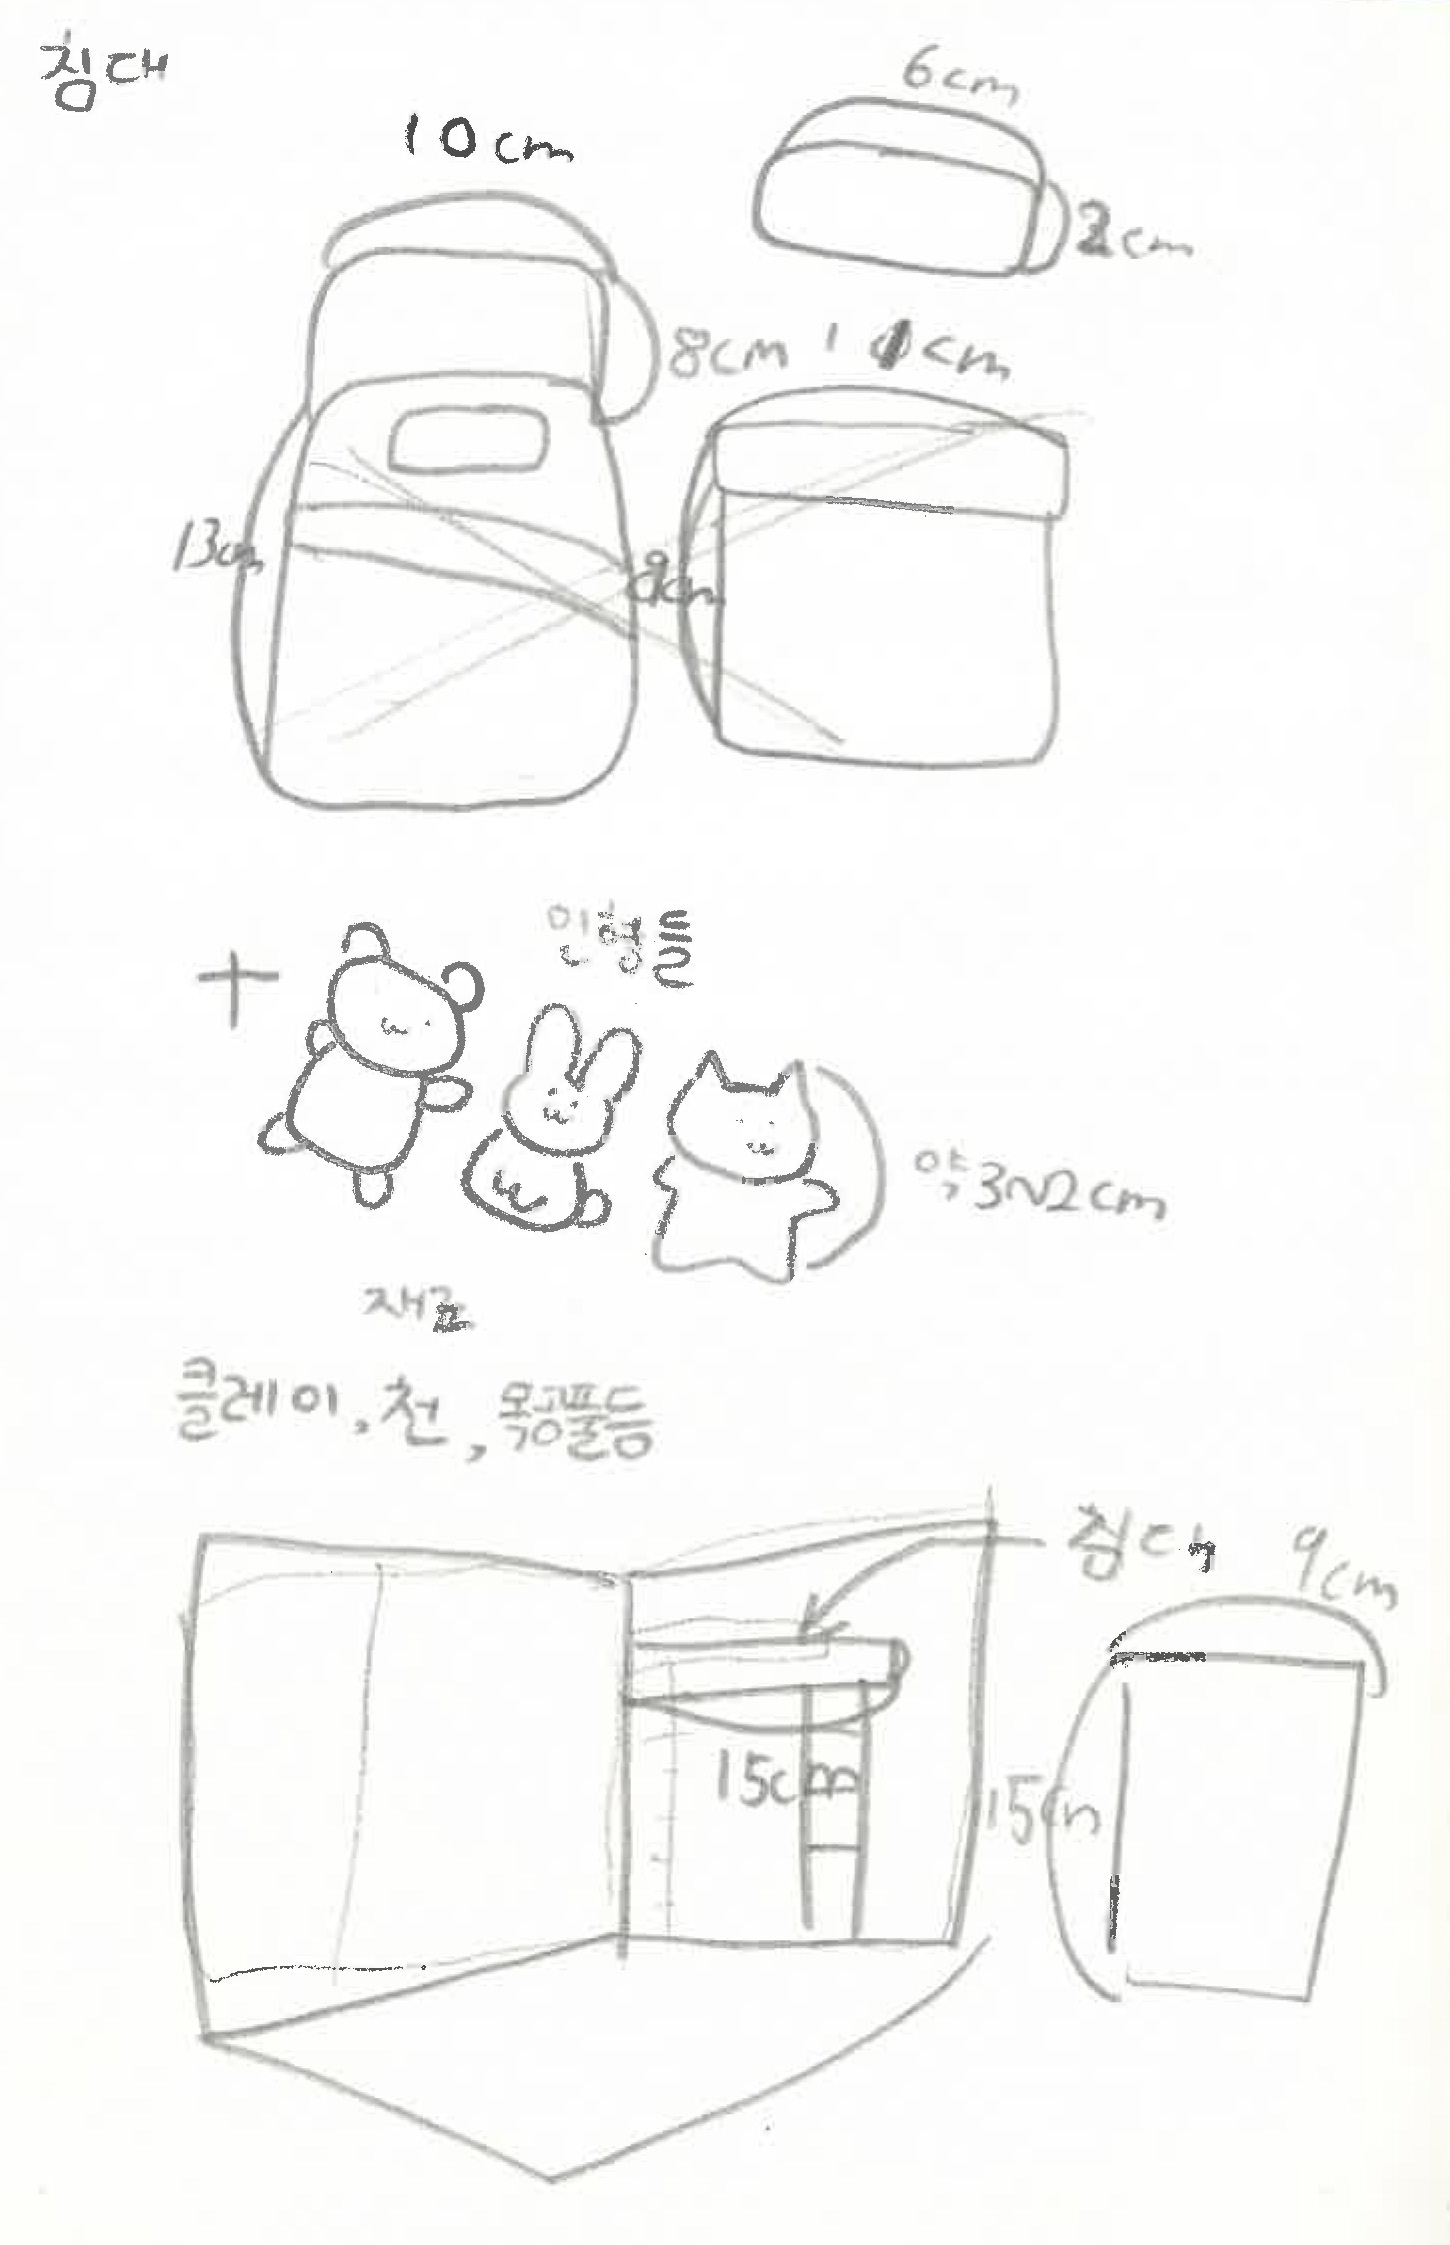 침대
10cm
6cm
2cm
8cm
13cm
인형들
약 3~2cm
재료
클레이, 천, 목공풀등
침대
9cm
15cm
15cm